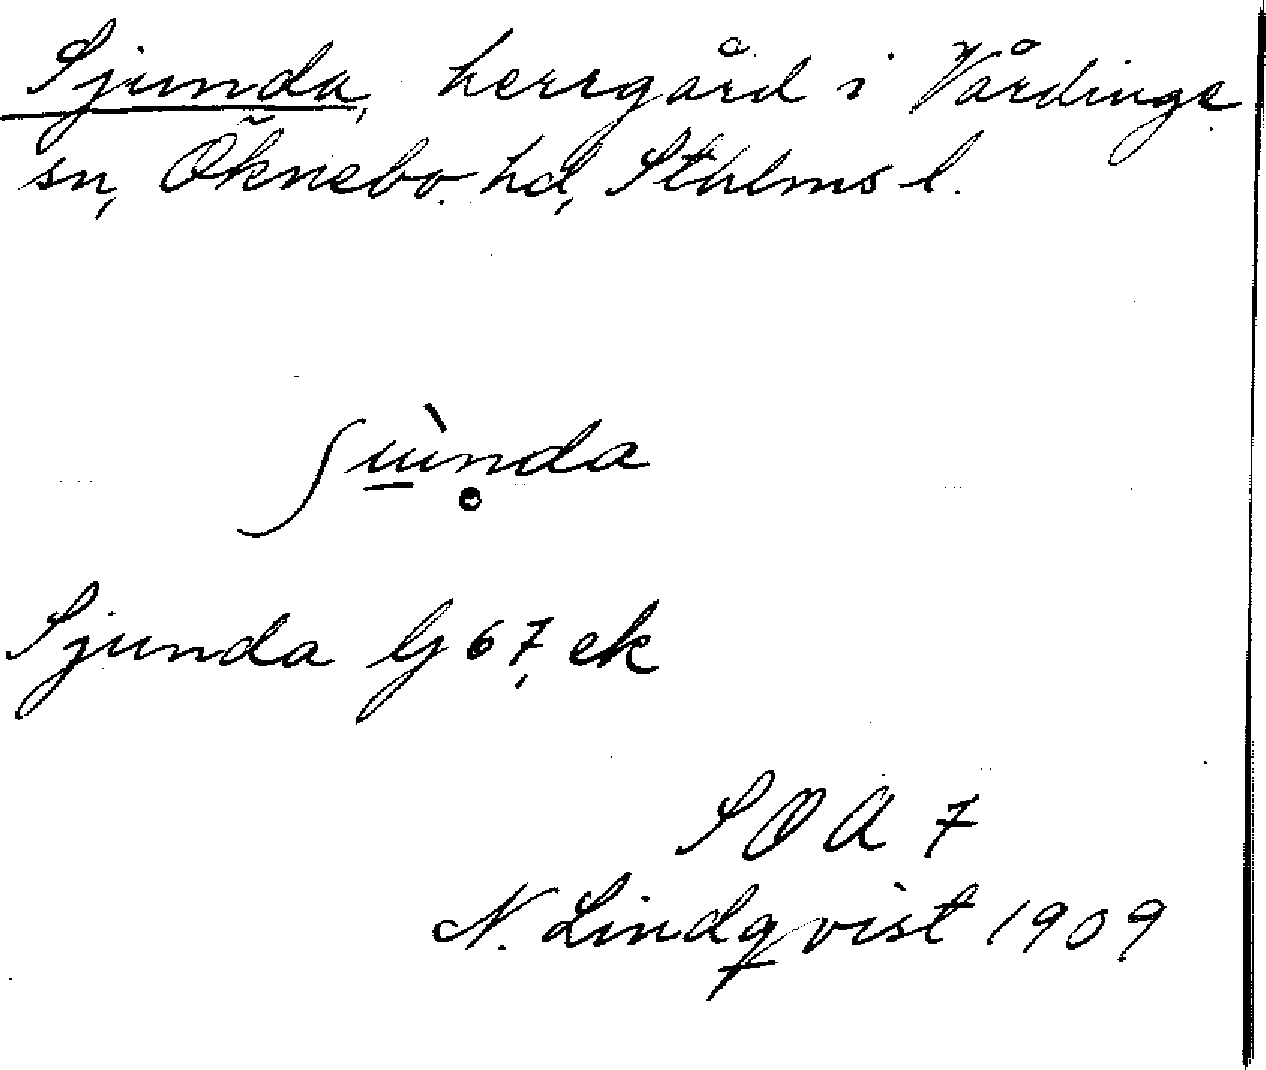 Sjunda, herrgård i Vårdinge
sn, Öknebo hd, Sthlms l.
Sjunda G 67, ek
SOA 7
N. Lindqvist 1909